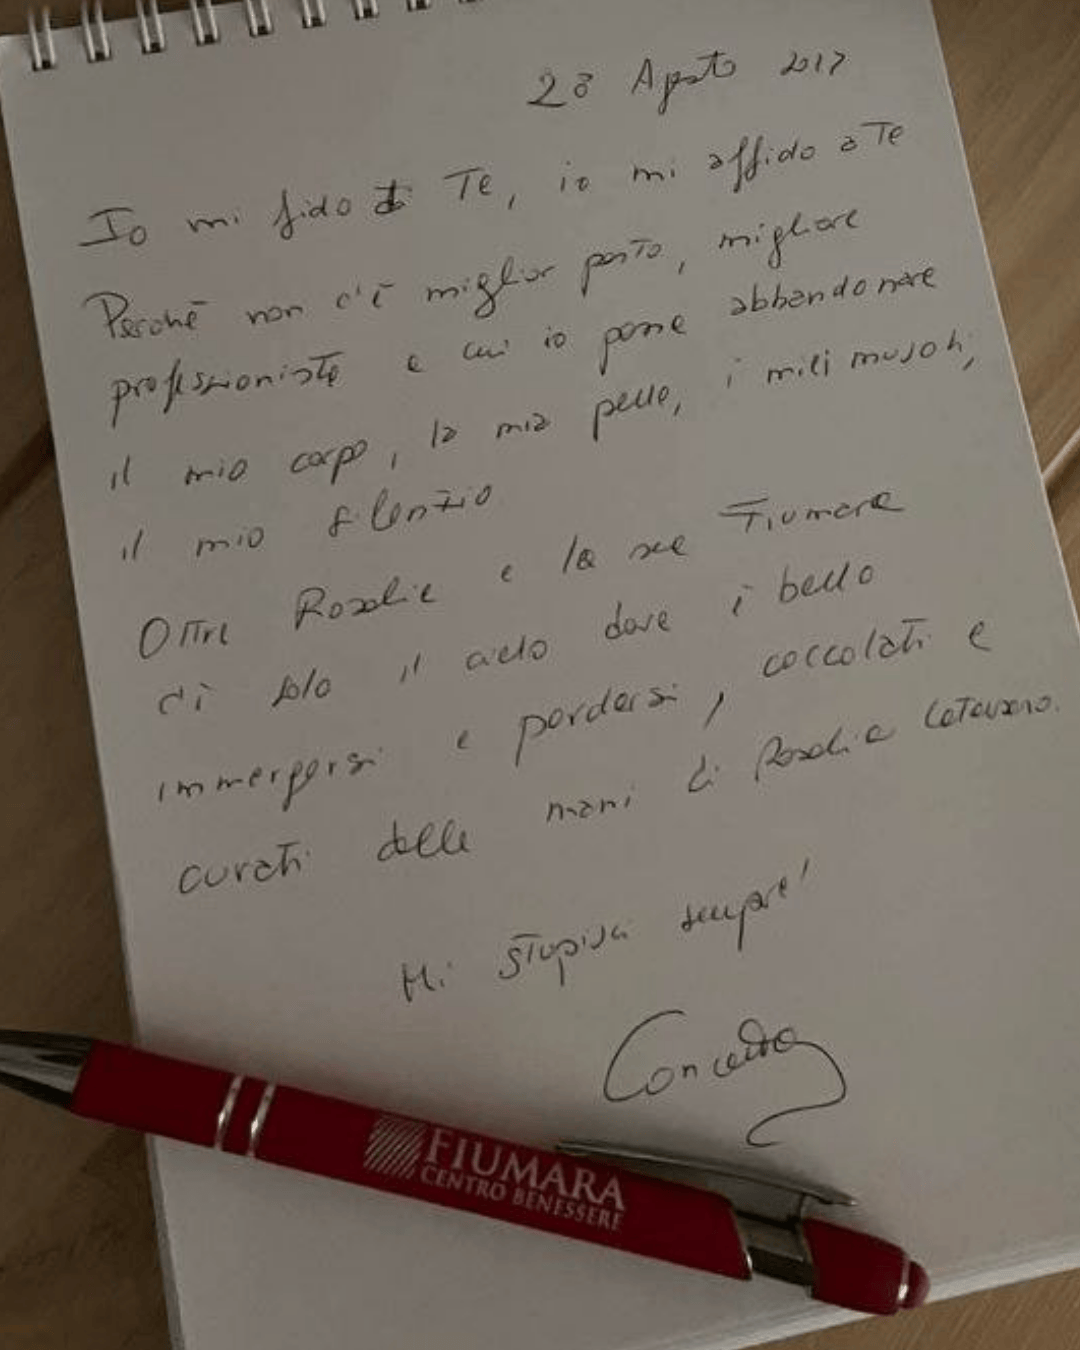 28 Agosto 2017
Io mi fido di Te, io mi affido a Te
Perchē non c'ē miglior posto, migliore
professionista a cui io possa abbandonare
il mio corpo, la mia pelle, i miei muscoli,
il mio silenzio
Oltre Rosalia e la sua Fiumara
c'è solo il cielo dove è bello
immergersi e perdersi, coccolati e
curati dalle mani di Rosalia
Mi stupisci sempre!
Concetta
FIUMARA
CENTRO BENESSERE